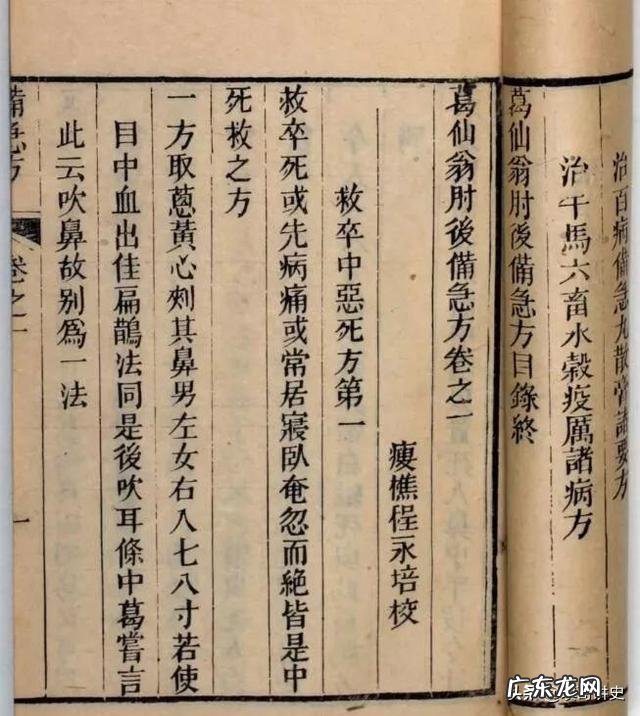 治百病備急丸散膏諸要方
治牛馬六畜水穀疫厲諸病方
葛仙翁肘後備急方目錄終
葛仙翁肘後備急方卷之一
瘦樵程永培校
救卒中惡死方第一
救卒死或先病痛或常居寢臥奄忽而絕皆是中
死救之方
一方取蔥黃心刺其鼻男左女右入七八寸若使
目中血出佳扁鵲法同是後吹耳條中葛嘗言
此云吹鼻故別爲一法
備急方
卷之一
一
广东龙网